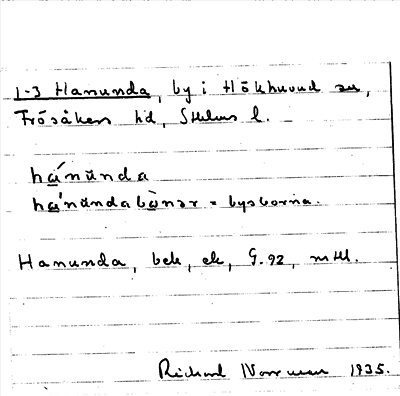 1-3 Hanunda, by i Hökhuvud sn,
Frösåkers hd, Sthlms l.
hánũnda
há'nũndabònər = bysborna.
Hanunda, bek, ek, G.92, mtl.
Richard Norrman 1935.